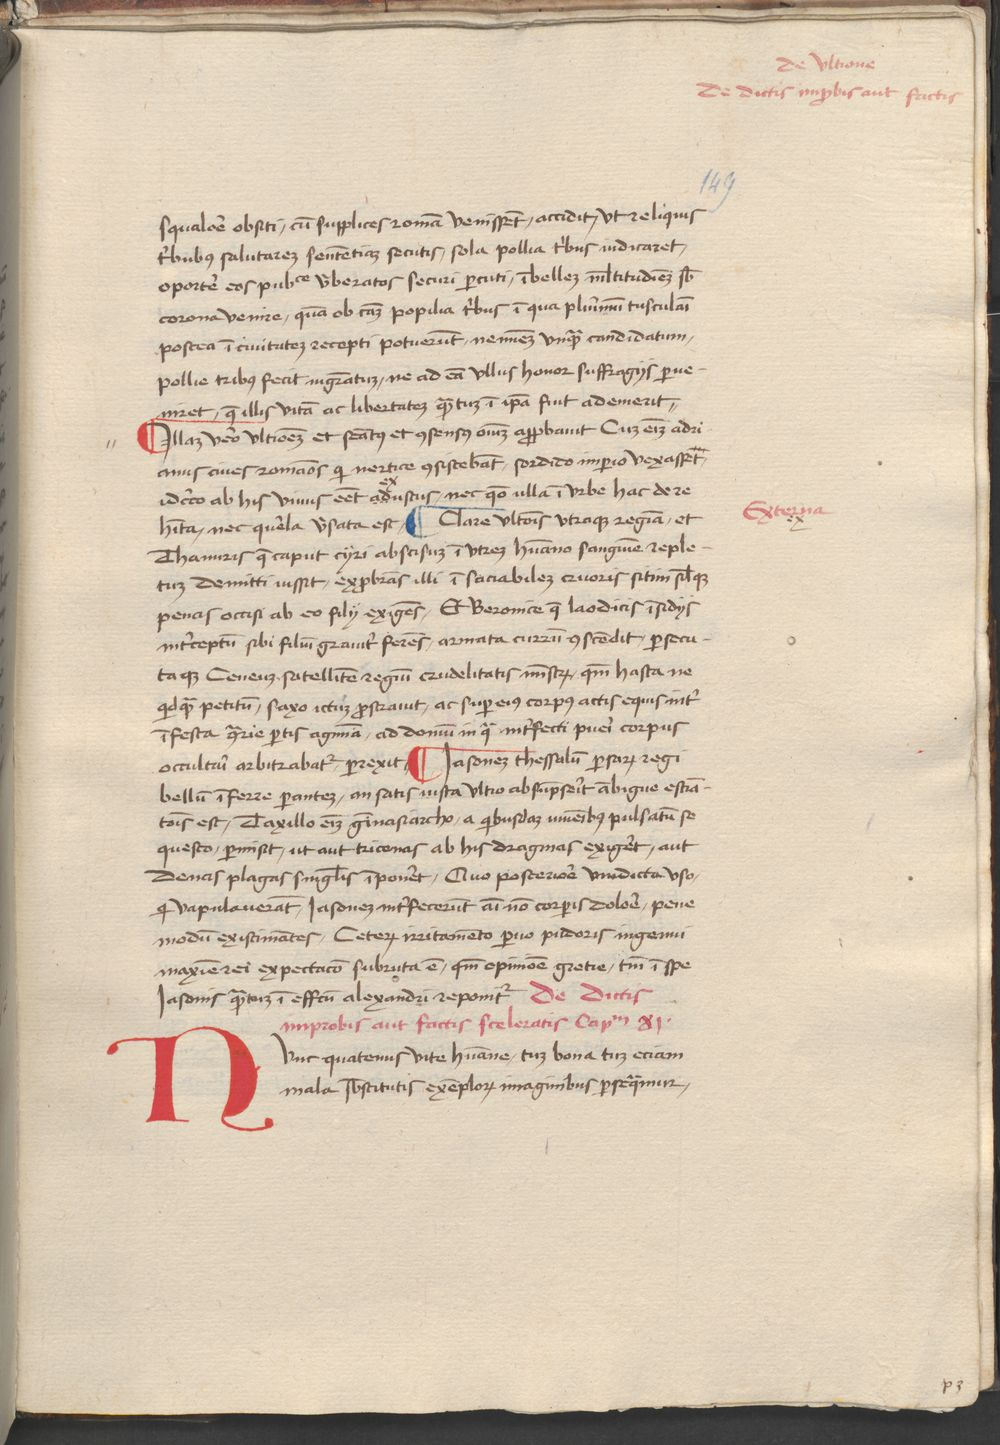 De Vltione
De dictis improbis aut factis
149
squalore obsiti, cū supplices romā venissēt, accidit, vt reliquis
tribubꝰ salutareꝫ sententiaꝫ secutis, sola pollia tribus iudicaret,
oportere eos pubᶜᵉ v̄beratos securi percuti, ībelleꝫ ml̄titudieꝫ sb̄
corona venire, quā ob cāꝫ popilia tribus ī qua plurimū tusculāi
postea ī ciuitateꝫ recepti potuerūt, nemineꝫ vnqꝫ candidatum,
pollie tribꝰ fecit migratuꝫ, ne ad eā vllus honor suffragijs perue-
niret, q̄ illis vitā ac libertateꝫ quātuꝫ ī ipā fuit ademerit,,
Illaꝫ vero vltioeꝫ et senatꝰ et ꝯsensꝰ oniuꝫ approbauit Cuꝫ eiꝫ adri
anus ciues romaōs qui vertice ꝯsistebāt, sordido imperio vexasset,
idcirco ab his viuus eēt exustus, nec qo ulla ī vrbe hac de re
hīta, nec querela v̄sata est, Clare vltois vtraqꝫ regia, et
Externa
ex
Thamiris q̄ caput cyri abscisuꝫ ī vtreꝫ hūano sanguine reple-
tuꝫ demitti iussit, exprobrās illi ī saciabileꝫ cruoris sitim sil̄qꝫ
penas occisi ab eo filij exigēs, Et Beronice q̄ laodicis īsidijs
īterceptū sibi filiū grauiter ferēs, armata currū ꝯscēdit, persecu-
taqꝫ Ceneuꝫ satellitē regiū crudelitatis mīstrꝝ, qm̄ hasta ne
qdqꝫ petitū, saxo ictuꝫ prostrauit, ac super eiꝰ corpꝰ actis equis inter
īfesta ꝯtrarie partis agmina, ad domū in qua interfecti pueri corpus
occultari arbitrabatur, perexit, Iasoneꝫ thessalū persaꝝ regi
bellū īferre paranteꝫ, an satis iusta vltio absumpserit ābigue estīa-
tois est, Taxillo eiꝫ gīnasiarcho, a qbusdaꝫ iuuenibꝰ pulsatū se
questo, permisit, ut aut tricenas ab his dragmas exigeret, aut
denas plagas singulis īponeret, Quo posteriore vindicta vso,
q vapulauerāt, Iasoneꝫ interfecerūt ai nō corperis dolore, pene
modū existimātes, Ceteꝝ irritamēto paruo pudoris ingenui
maxie rei expectaco subruta ē, qm̄ opinioe gretie, tm̄ ī spe
Iasonis quātuꝫ ī effcū alexandri reponitur De Dictis
improbis aut factis sceleratis Capᵐ XI.
NVnc quatenus vite hūane, tuꝫ bona tuꝫ eciam
mala sb̄stitutis exēploꝝ imaginibus persequimur,
p 3